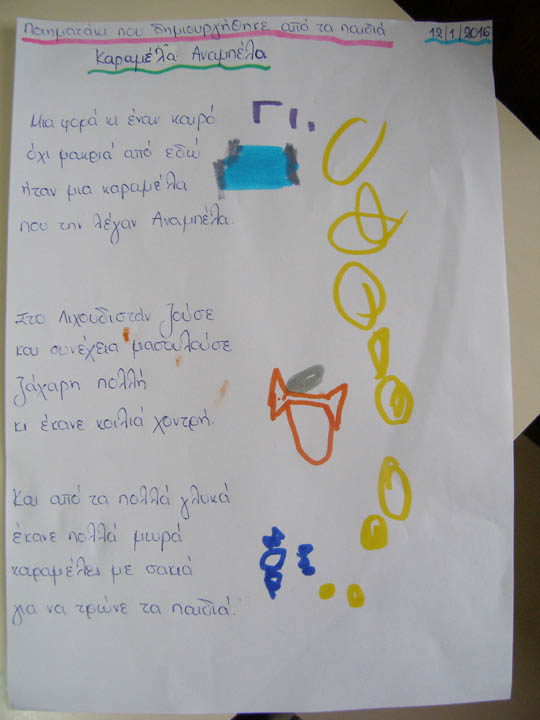 Ποιηματάκι που δημιουργήθηκε από τα παιδιά 12/1/2016
Καραμέλα Αναμπέλα
Μια φορά κι έναν καιρό
όχι μακριά από εδώ
ήταν μια καραμέλα
που την λέγαν Αναμπέλα.
Στο Λιχουδιστάν ζούσε
και συνέχεια μασουλούσε
ζάχαρη πολλή
κι έκανε κοιλιά χοντρή.
Και από τα πολλά γλυκά
έκανε πολλά μωρά
καραμέλες με σακιά
για να τρώνε τα παιδιά.